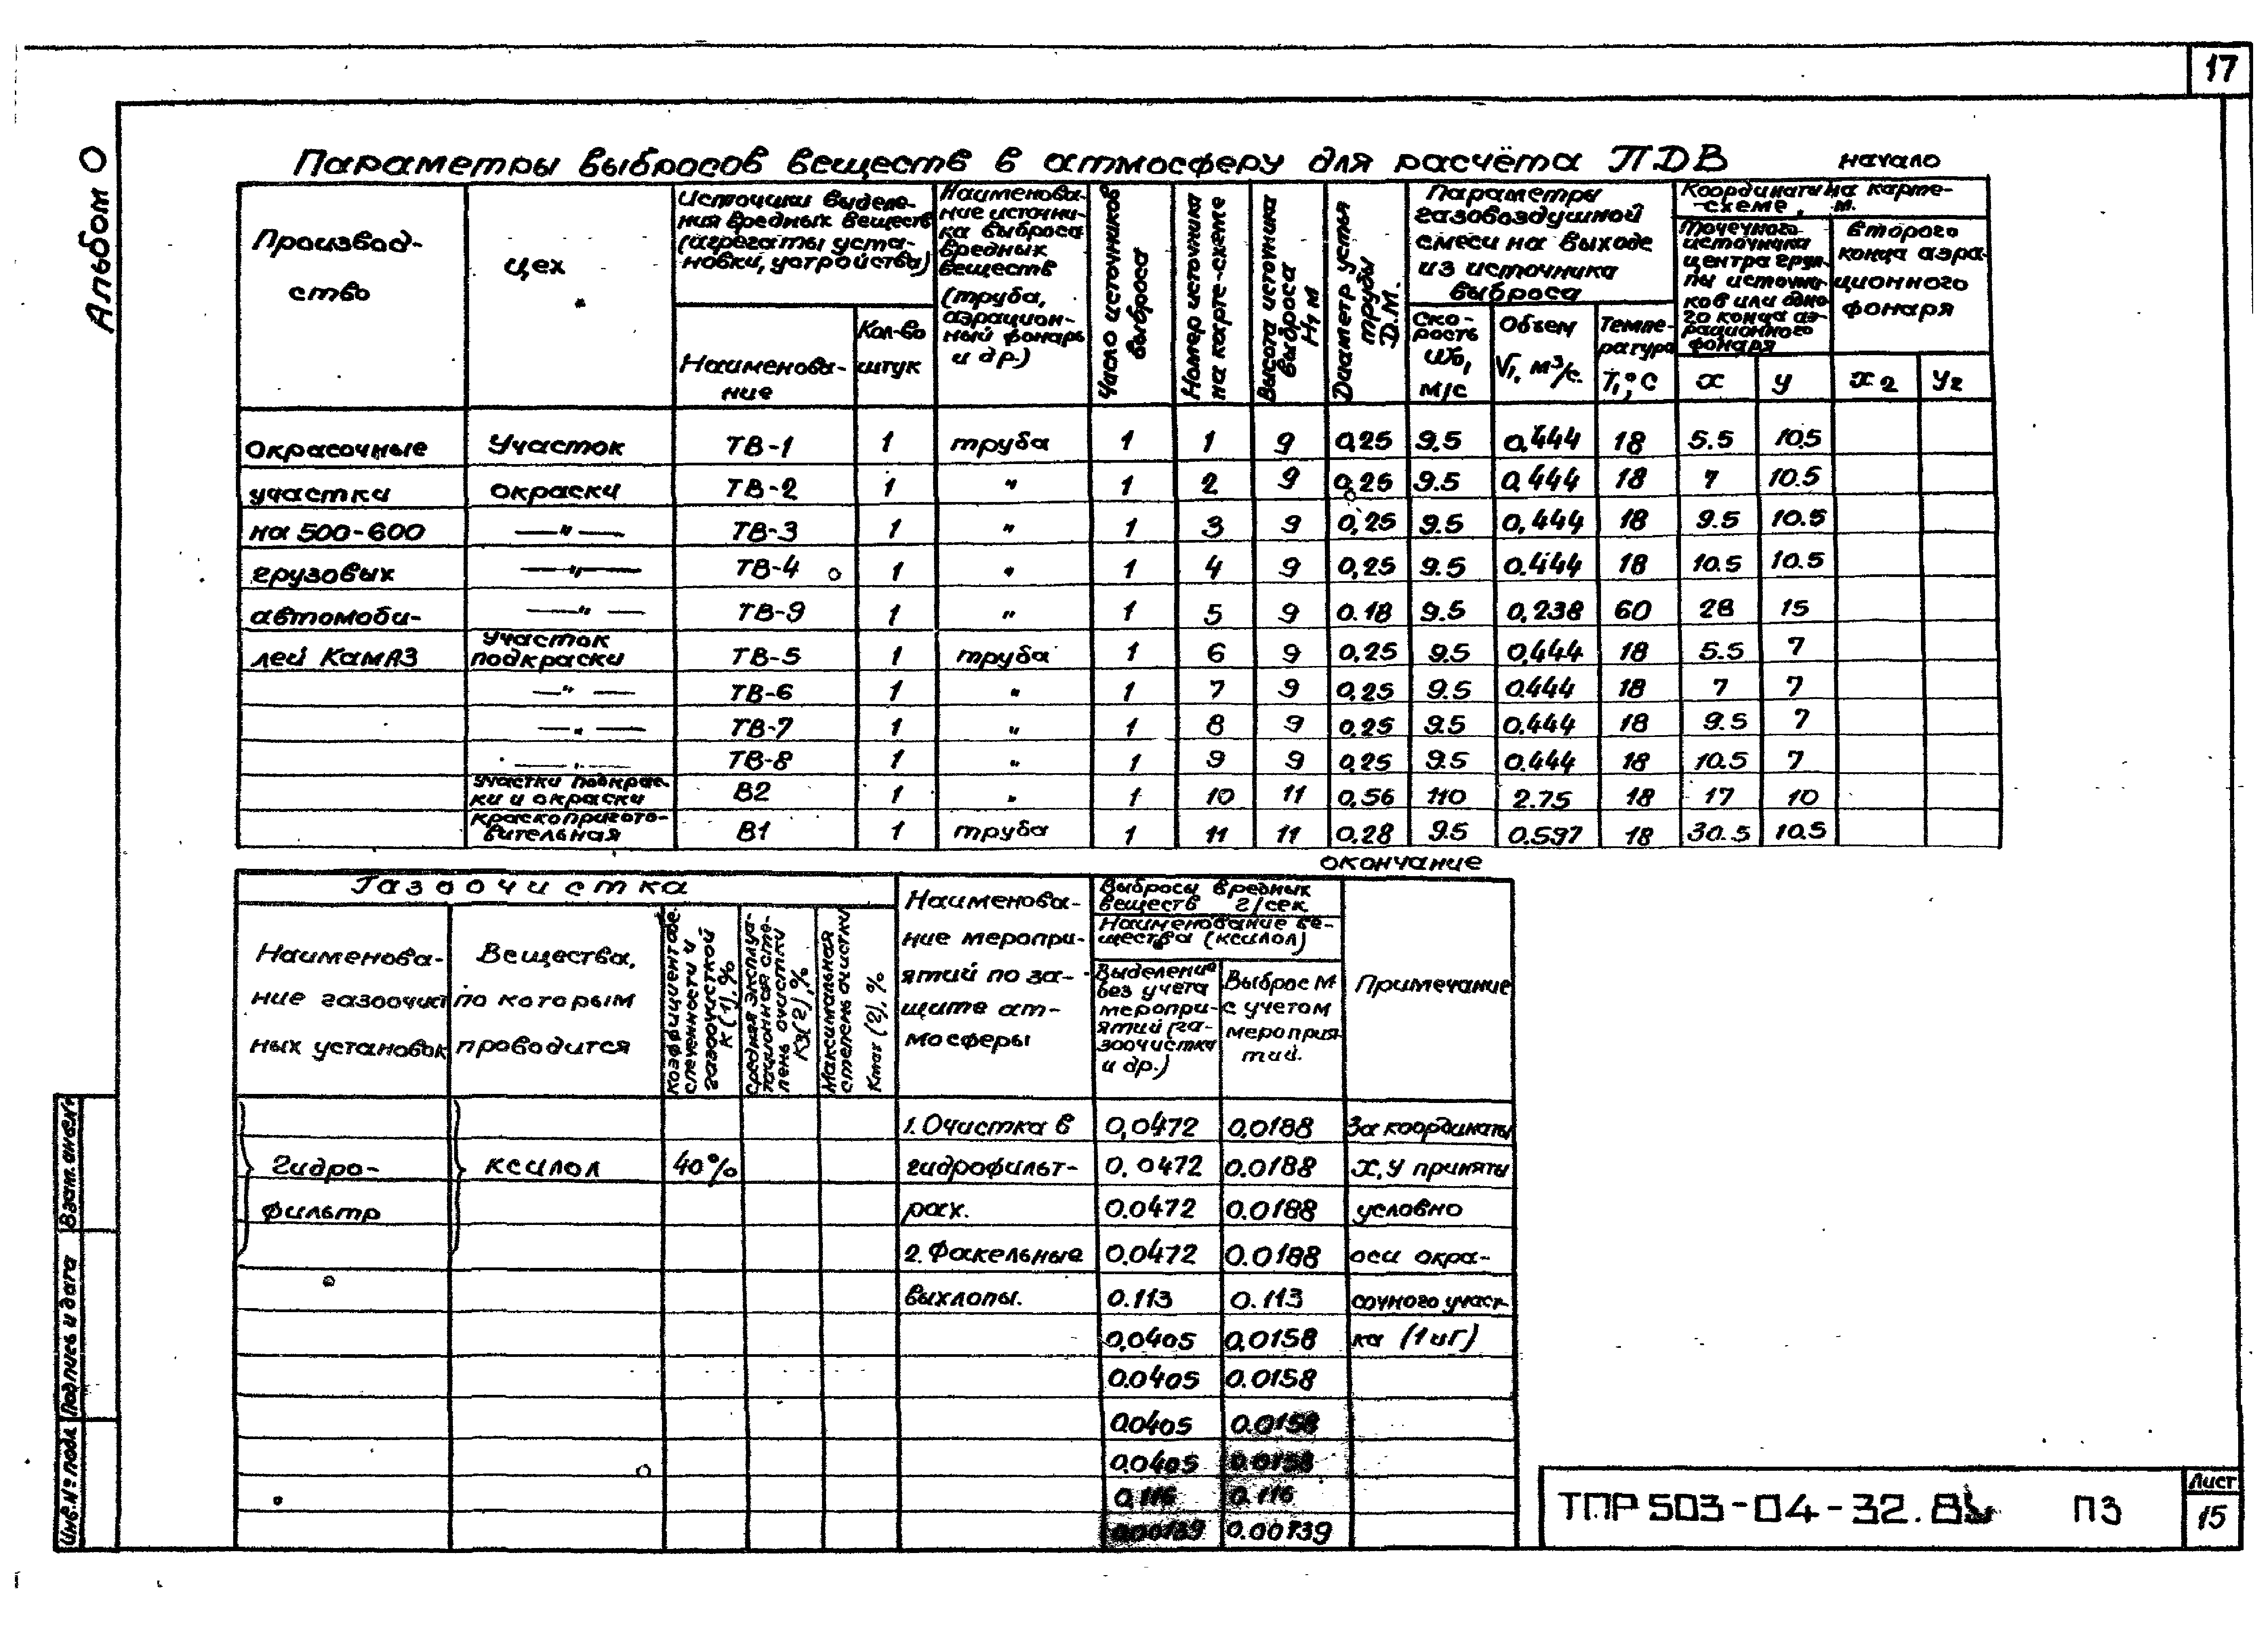 17
Альбом 0
Параметры выбросов веществ в атмосферу для расчёта ПДВ начало
Производ-
ство
цех
Источники выделе-
ния вредных веществ
(агрегаты, уста-
новки, устройства)
Наименова-
ние
Кол-во
штук
Наименова-
ние источни-
ка выброса
вредных
веществ
(труба,
аэрацион-
ный фонарь
и др.)
Число источников
выброса
Номер источника
на карте-схеме
Высота источника
выброса
H, м
Диаметр устья
трубы
D.М.
Параметры
газовоздушной
смеси на выходе
из источника
выброса
Ско-
рость
W₀,
м/с
Объем
V₁, м³/с.
Темпе-
ратура
T₁, °C
Координаты на карте-
схеме, м.
Точечного
источника
центра груп-
пы источни-
ков или одно
го конца аэ-
рационного
фонаря
второго
конца аэра-
ционного
фонаря
x y x2 y2
Окрасочные Участок ТВ-1 1 труба 1 1 9 0,25 9.5 0,444 18 5.5 10.5
участки окраски ТВ-2 1 " 1 2 9 0,25 9.5 0,444 18 7 10.5
на 500-600 —"— ТВ-3 1 " 1 3 9 0,25 9.5 0,444 18 9.5 10.5
грузовых —"— ТВ-4 1 " 1 4 9 0,25 9.5 0.444 18 10.5 10.5
автомоби- —"— ТВ-9 1 " 1 5 9 0.18 9.5 0,238 60 28 15
лей КамАЗ Участок подкраски ТВ-5 1 труба 1 6 9 0,25 9.5 0,444 18 5.5 7
—"— ТВ-6 1 " 1 7 9 0,25 9.5 0.444 18 7 7
—"— ТВ-7 1 " 1 8 9 0,25 9.5 0.444 18 9.5 7
—"— ТВ-8 1 " 1 9 9 0,25 9.5 0.444 18 10.5 7
участки подкрас-
ки и окраски В2 1 " 1 10 11 0,56 110 2.75 18 17 10
краскопригото-
вительная В1 1 труба 1 11 11 0.28 9.5 0.597 18 30.5 10.5
окончание
Газоочистка
Наименова-
ние газоочист
ных установок
Вещества,
по которым
проводится
Коэффициент обе-
спеченности
газоочисткой
К(1), %
Средняя эксплуа-
тационная сте-
пень очистки
Кэ(2), %
Максимальная
степень очистки
Kmax (2), %
Наименова-
ние меропри-
ятий по за-
щите ат-
мосферы
Выбросы вредных
веществ г/сек.
Наименование ве-
щества (ксилол)
Выделение
без учета
меропри-
ятий (га-
зоочистка
и др.)
Выброс М
с учетом
мероприя
тий.
Примечание
1. Очистка в 0,0472 0,0188 За координаты
Гидро- ксилол 40% гидрофильт- 0.0472 0.0188 x, y приняты
фильтр рах. 0.0472 0.0188 условно
2. Факельные 0,0472 0.0188 оси окра-
выхлопы. 0.113 0.113 сочного участ-
0,0405 0,0158 ка (1 и Г)
0.0405 0.0158
0.0405 0.0158
0.0405 0.0158
0.116 0.116
0.00739 0.00739
Взам. инв. №
Подпись и дата
Инв. № подл.
ТПР 503-04-32. ПЗ
Лист
15